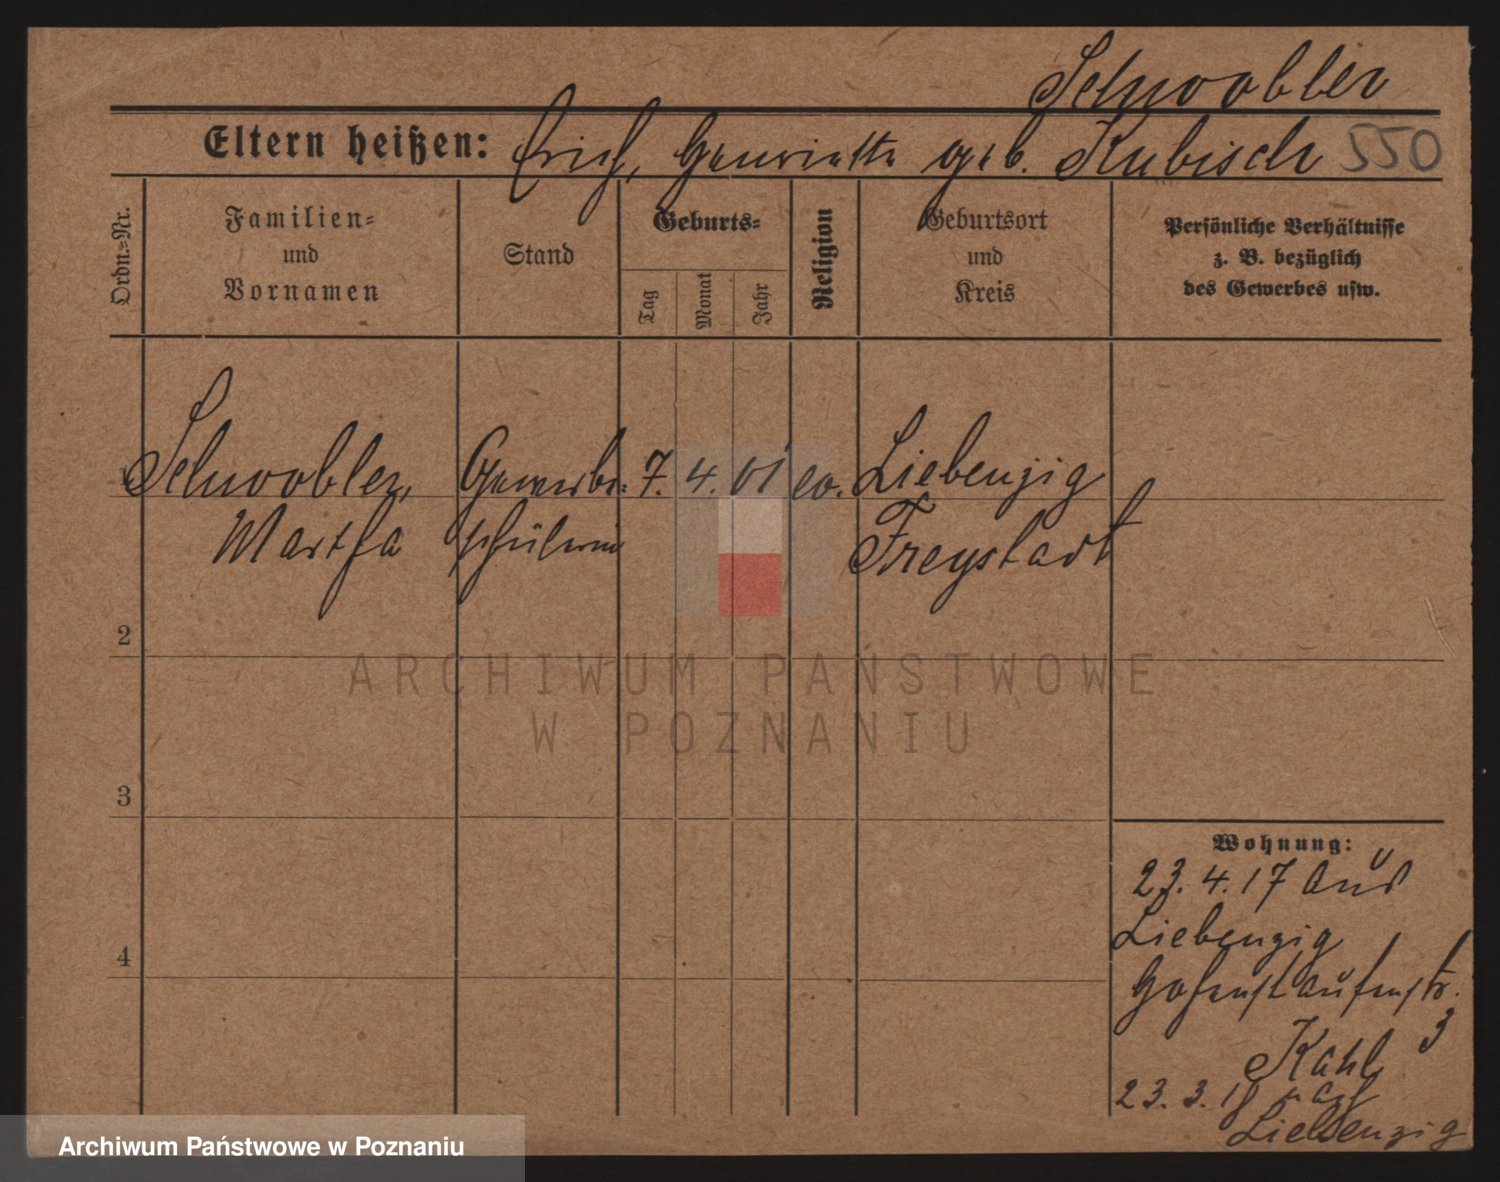 Schwobbler
Eltern heißen: Erich, Henriette geb. Kubisch 550
Ordn.=Nr.
Familien=
und
Vornamen
Stand
Geburts=
Tag
Monat
Jahr
Religion
Geburtsort
und
Kreis
Persönliche Verhältnisse
z. B. bezüglich
des Gewerbes usw.
1 Gewerbe= 7. 4. 01 ev. Liebenzig
Martha schülerin Freystadt
2
3
4
ARCHIWUM PAŃSTWOWE
W POZNANIU
Wohnung:
23. 4. 17 aus
Liebenzig
Hohenstaufenstr.
3
Kahl
23. 3. 18 nach
Liebenzig
Archiwum Państwowe w Poznaniu